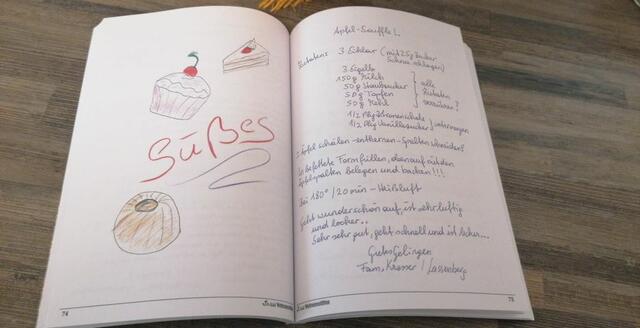 Süßes
74
Apfel-Souffle!
Zutaten: 3 Eiklar (mit 25g Zucker
Schnee schlagen)
3 Eigelb
150g Milch
50g Staubzucker
50g Topfen
50g Mehl
alle
Zutaten
verrühren
1/2 Pkg Zitronenschale
1/2 Pkg Vanillezucker
unterrühren
2 Äpfel schälen - entkernen - Spalten schneiden!
In befettete Form füllen, oben auf mit den
Apfelspalten belegen und backen!!!
Bei 180° / 20 min - Heißluft
Geht wunderschön auf, ist sehr luftig
und locker..
Sehr sehr gut, geht schnell und ist lecker...
Gutes Gelingen
Fam. Krasser /
75